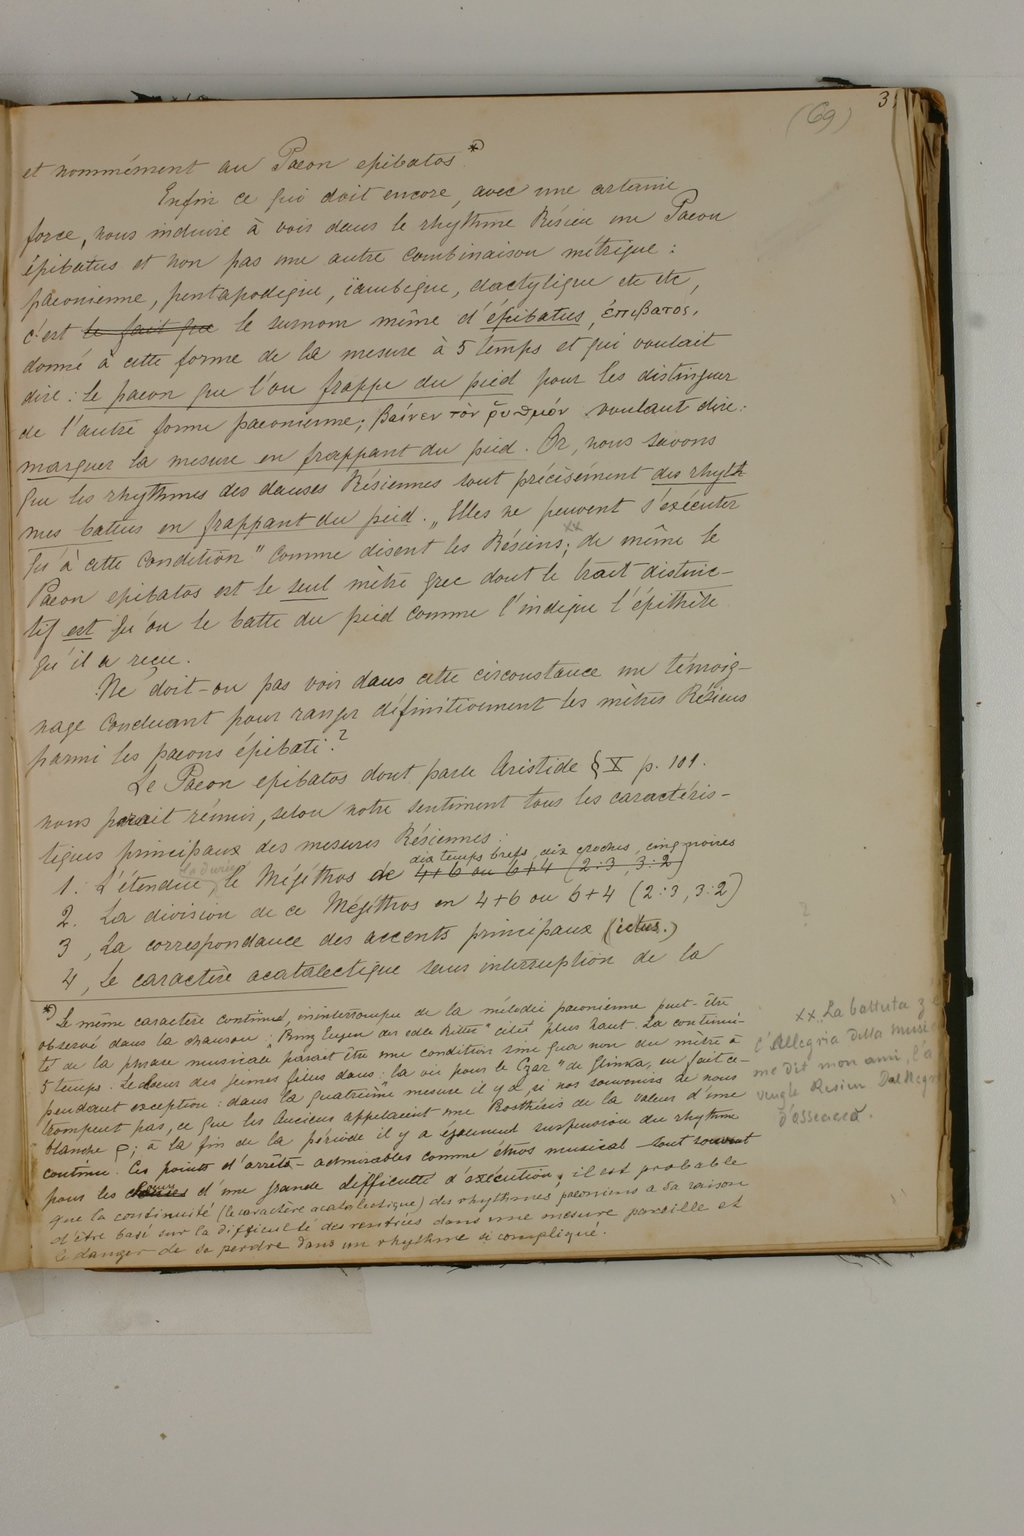 (69) 3
et nommément au Paeon epibatos *)
Enfin ce qui doit encore, avec une certaine
force, nous induire à voir dans le rhythme Résien un Paeon
épibatus et non pas une autre combinaison métrique:
paeonienne, pentapodique, ïambique, dactylique etc etc,
c'est le fait que le surnom même d'épibatus, ἐπιβατος,
donné à cette forme de la mesure à 5 temps et qui voulait
dire: le paeon que l'on frappe du pied pour les distinguer
de l'autre forme paeonienne; βαίνεν τὸν ῥυθμόν voulant dire:
marquer la mesure en frappant du pied. Or, nous savons
que les rhythmes des danses Résiennes sont précisément des rhyth
mes battus en frappant du pied. „Elles ne peuvent s'exécuter
qu'à cette condition" comme disent les Résiens; xx de même le
Paeon epibatos est le seul mètre grec dont le trait distinc-
tif est qu'on le batte du pied comme l'indique l'épithète
qu'il a reçu.
Ne doit-on pas voir dans cette circonstance un témoig-
nage concluant pour ranger définitivement les mètres Résiens
parmi les paeons épibati?
Le Paeon epibatos dont parle Aristide § X p. 101.
nous parait réunir, selon notre sentiment tous les caractéris-
tiques principaux des mesures Résiennes:
dix temps brefs, dix croches, cinq noires
1. L'étendue le Mégéthos de 4+6 ou 6+4 (2:3, 3:2)
2. La division de ce Mégéthos en 4+6 ou 6+4 (2:3, 3:2)
3, La correspondance des accents principaux (ictus.)
4, Le caractère acatalectique sans interruption de la
*) Le même caractère continu, ininterrompu de la mélodie paeonienne peut-être
observé dans la chanson „Prinz Eugen der edle Ritter" citée plus haut. La continui-
té de la phrase musicale parait être une condition sine qua non du mètre à
5 temps. Le choeur des jeunes filles dans: la vie pour le Czar" de Glinka, en fait ce-
pendant exception: dans la quatrième mesure il y a, si nos souvenirs ne nous
trompent pas, ce que les Anciens appelaient une Prosthésis de la valeur d'une
blanche; à la fin de la période il y a également suspension du rhythme
continu. Ces points d'arrêts - admirables comme éthos musical - sont souvent
pour les choeurs d'une grande difficulté d'exécution; il est probable
que la continuité (le caractère acatalectique) des rhythmes paeoniens a sa raison
d'être basé sur la difficulté des rentrées dans une mesure pareille et
le danger de se perdre dans un rhythme si compliqué.
xx La battuta z'è
l'Allegria della music
me dit mon ami, l'a
veugle Resien Dal Negro
d'Osseacco.